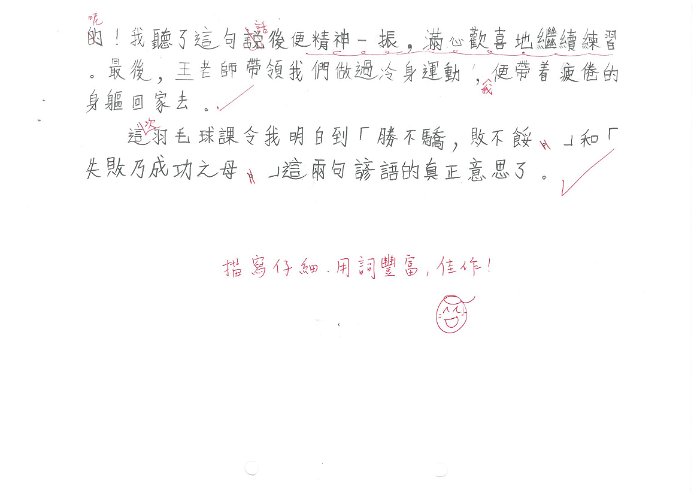 呢
的！我聽了這句說話後便精神一振，滿心歡喜地繼續練習
。最後，王老師帶領我們做過冷身運動，我便帶着疲倦的
身軀回家去。
這次羽毛球課令我明白到「勝不驕，敗不餒」和「
失敗乃成功之母」這兩句諺語的真正意思了。
描寫仔細，用詞豐富，佳作！